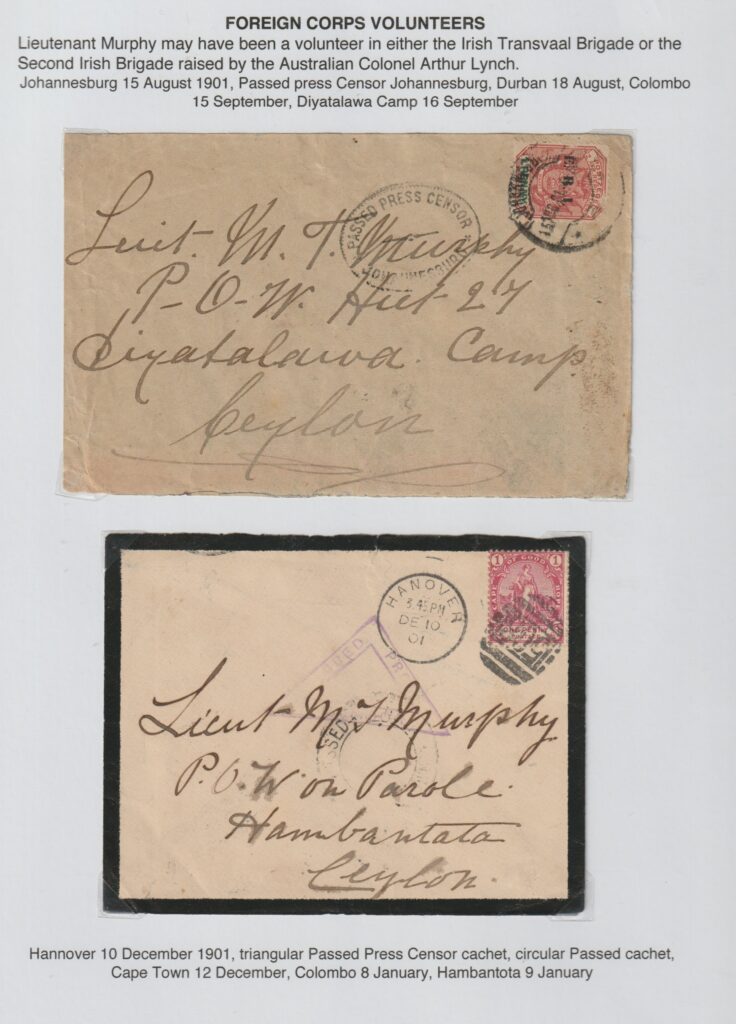 FOREIGN CORPS VOLUNTEERS
Lieutenant Murphy may have been a volunteer in either the Irish Transvaal Brigade or the
Second Irish Brigade raised by the Australian Colonel Arthur Lynch.
Johannesburg 15 August 1901, Passed press Censor Johannesburg, Durban 18 August, Colombo
15 September, Diyatalawa Camp 16 September
PASSED PRESS CENSOR
JOHANNESBURG
Lieut. M. T. Murphy
P-O-W. Hut 27
Diyatalawa Camp
Ceylon
HANOVER
3.45PM
DE 10
01
1 CAPE OF GOOD 1
Lieut M T Murphy
P.O.W on Parole.
Hambantata
Ceylon.
Hannover 10 December 1901, triangular Passed Press Censor cachet, circular Passed cachet,
Cape Town 12 December, Colombo 8 January, Hambantota 9 January